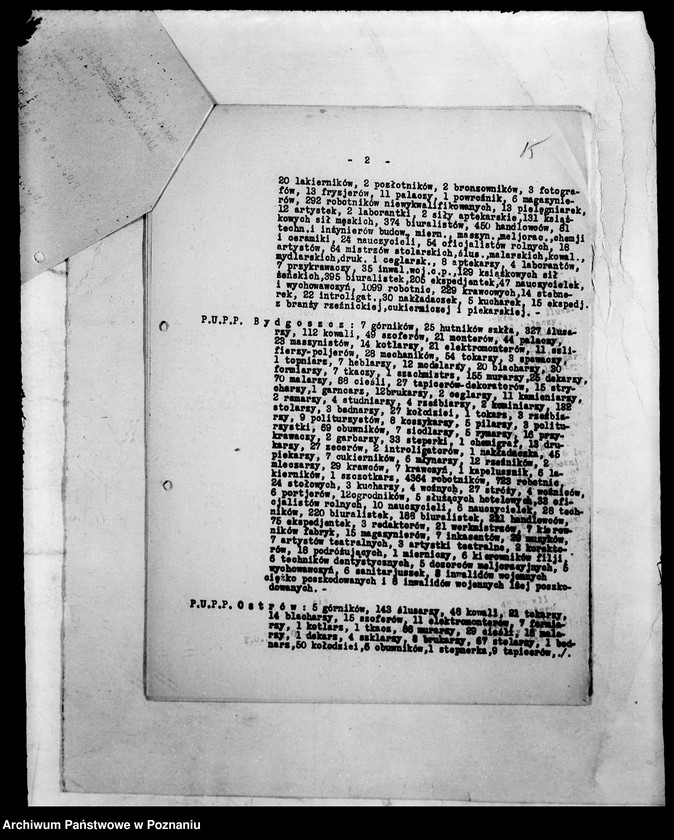 15
- 2 -
20 lakierników, 2 pozłotników, 2 bronzowników, 3 fotogra-
fów, 13 fryzjerów, 11 palaczy, 1 powroźnik, 6 magazynie-
rów, 292 robotników niewykwalifikowanych, 13 pielęgniarek,
12 artystek, 2 laborantki, 2 siły aptekarskie, 131 książ-
kowych sił męskich, 374 biuralistów, 450 handlowców, 81
techn. i inżynierów budow., miern., maszyn., meljorac., chemji
i ceramiki, 24 nauczycieli, 54 oficjalistów rolnych, 16
artystów, 64 mistrzów stolarskich, ślus., malarskich, kowal.,
mydlarskich, druk. i ceglarsk., 8 aptekarzy, 4 laborantów,
7 przykrawaczy, 35 inwal. woj. c.p., 129 książkowych sił
żeńskich, 395 biuralistek, 205 ekspedjentek, 47 nauczycielek,
i wychowawczyń, 1099 robotnic, 229 krawcowych, 14 stebne-
rek, 22 introligat., 30 nakładaczek, 5 kucharek, 15 ekspedj.
z branży rzeźnickiej, cukierniczej i piekarskiej. -
P.U.P.P. Bydgoszcz: 7 górników, 25 hutników szkła, 327 ślusa-
rzy, 112 kowali, 49 szoferów, 21 monterów, 44 palaczy,
23 maszynistów, 14 kotlarzy, 21 elektromonterów, 11 szli-
fierzy-poljerów, 28 mechaników, 54 tokarzy, 3 spawaczy,
1 topniarz, 7 heblarzy, 12 modelarzy, 20 blacharzy, 30
formiarzy, 7 tkaczy, 1 szachmistrz, 155 murarzy, 25 dekarzy,
70 malarzy, 88 cieśli, 27 tapicerów-dekoratorów, 15 stry-
charzy, 1 garncarz, 12 brukarzy, 2 ceglarzy, 11 kamieniarzy,
2 ramarzy, 4 studniarzy, 4 rzeźbiarzy, 2 kominiarzy, 132
stolarzy, 3 bednarzy, 27 kołodziei, 3 tokarz, 3 rzeźbia-
rzy, 9 politurzystów, 8 koszykarzy, 5 pilarzy, 3 politu-
rzystki, 69 obuwników, 7 siodlarzy, 5 rymarzy, 16 przy-
krawaczy, 2 garbarzy, 33 steperki, 1 chemigraf, 13 dru-
karzy, 27 zecerów, 2 introligatorów, 1 nakładaczka, 45
piekarzy, 7 cukierników, 6 młynarzy, 12 rzeźników, 2
mleczarzy, 29 krawców, 7 krawczyń, 1 kapelusznik, 6 la-
kierników, 1 szczotkarz, 4364 robotników, 723 robotnic,
24 stołowych, 3 kucharzy, 4 woźnych, 27 stróży, 4 woźniców,
6 portjerów, 12 ogrodników, 5 służących hotelowych, 33 ofi-
cjalistów rolnych, 10 nauczycieli, 6 nauczycielek, 28 tech-
ników, 220 biuralistek, 188 biuralistek, 221 handlowców,
75 ekspedjentek, 3 redaktorów, 21 werkmistrzów, 7 kierow-
ników fabryk, 15 magazynierów, 7 inkasentów, 29 muzyków,
7 artystów teatralnych, 3 artystki teatralne, 2 korekto-
rów, 18 podróżujących, 1 mierniczy, 6 kierowników filji,
6 techników dentystycznych, 5 dozorców meljoracyjnych, 6
wychowawczyń, 6 sanitarjuszek, 8 inwalidów wojennych
ciężko poszkodowanych i 8 inwalidów wojennych lżej poszko-
dowanych. -
P.U.P.P. Ostrów: 5 górników, 143 ślusarzy, 46 kowali, 21 tokarzy,
14 blacharzy, 15 szoferów, 11 elektromonterów, 7 formia-
rzy, 1 kotlarz, 1 tkacz, 68 murarzy, 29 cieśli, 18 mala-
rzy, 1 dekarz, 4 szklarzy, 8 brukarzy, 67 stolarzy, 1 bed-
narz, 50 kołodziei, 6 obuwników, 1 stepnerka, 9 tapicerów, ./.
Archiwum Państwowe w Poznaniu